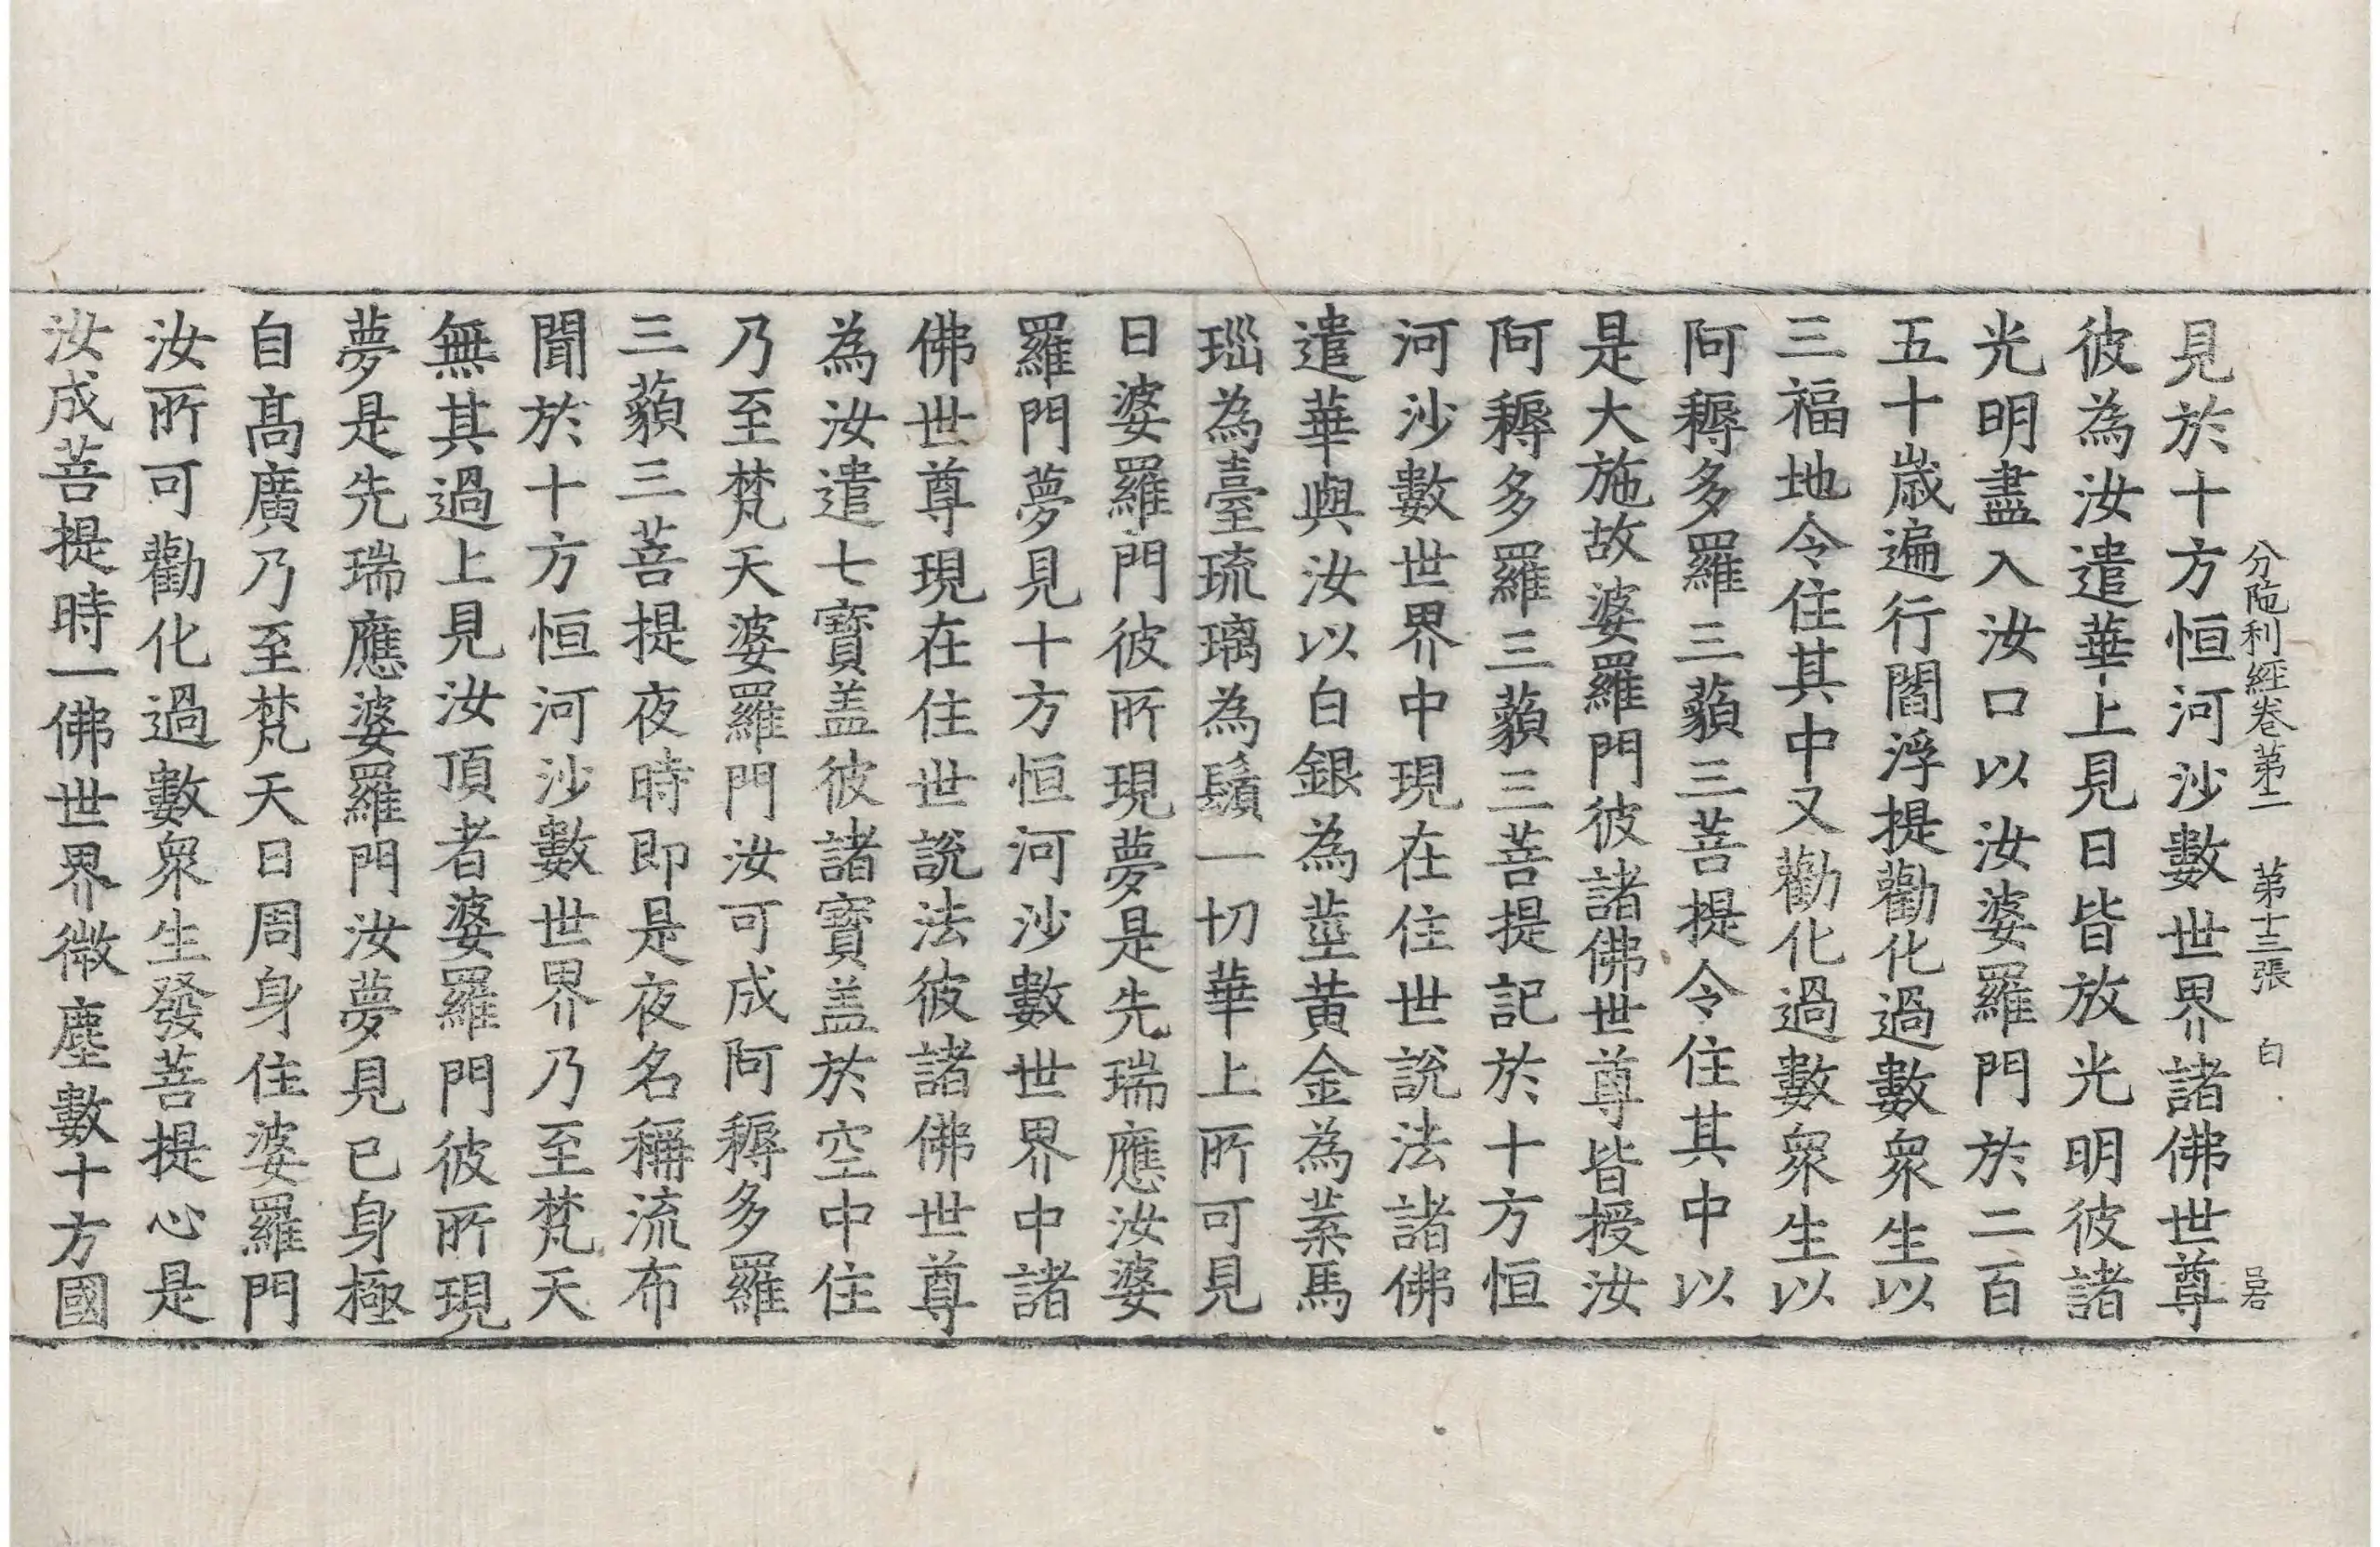 分陁利經卷第二 第十三張 白
見於十方恒河沙數世界諸佛世尊
彼為汝遣華上見日皆放光明彼諸
光明盡入汝口以汝婆羅門於二百
五十歲遍行閻浮提勸化過數衆生以
三福地令住其中又勸化過數衆生以
阿耨多羅三藐三菩提令住其中以
是大施故婆羅門彼諸佛世尊皆授汝
阿耨多羅三藐三菩提記於十方恒
河沙數世界中現在住世說法諸佛
遣華與汝以白銀為莖黃金為葉馬
瑙為臺琉璃為鬚一切華上所可見
日婆羅門彼所現夢是先瑞應汝婆
羅門夢見十方恒河沙數世界中諸
佛世尊現在住世說法彼諸佛世尊
為汝遣七寶盖彼諸寶盖於空中住
乃至梵天婆羅門汝可成阿耨多羅
三藐三菩提夜時即是夜名稱流布
聞於十方恒河沙數世界乃至梵天
無其過上見汝頂者婆羅門彼所現
夢是先瑞應婆羅門汝夢見已身極
自髙廣乃至梵天日周身住婆羅門
汝所可勸化過數衆生發菩提心是
汝成菩提時一佛世界微塵數十方國